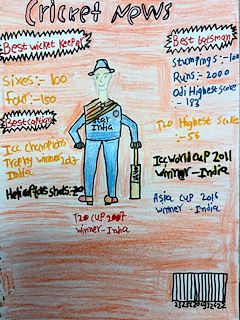 Cricket News
Best wicket keeper
Best batsman
Sixes:- 100
Four:-150
Stumping:-100
Runs:- 2000
Odi Highest Score
:- 183
Best Captain
Star
India
T20 Highest Score
:-56
Icc champions
Trophy winner 2013-
India
Icc World cup 2011
winner-India
Helicopter shots:20
Asia cup 2016
winner - India
T20 cup 2007
winner-India